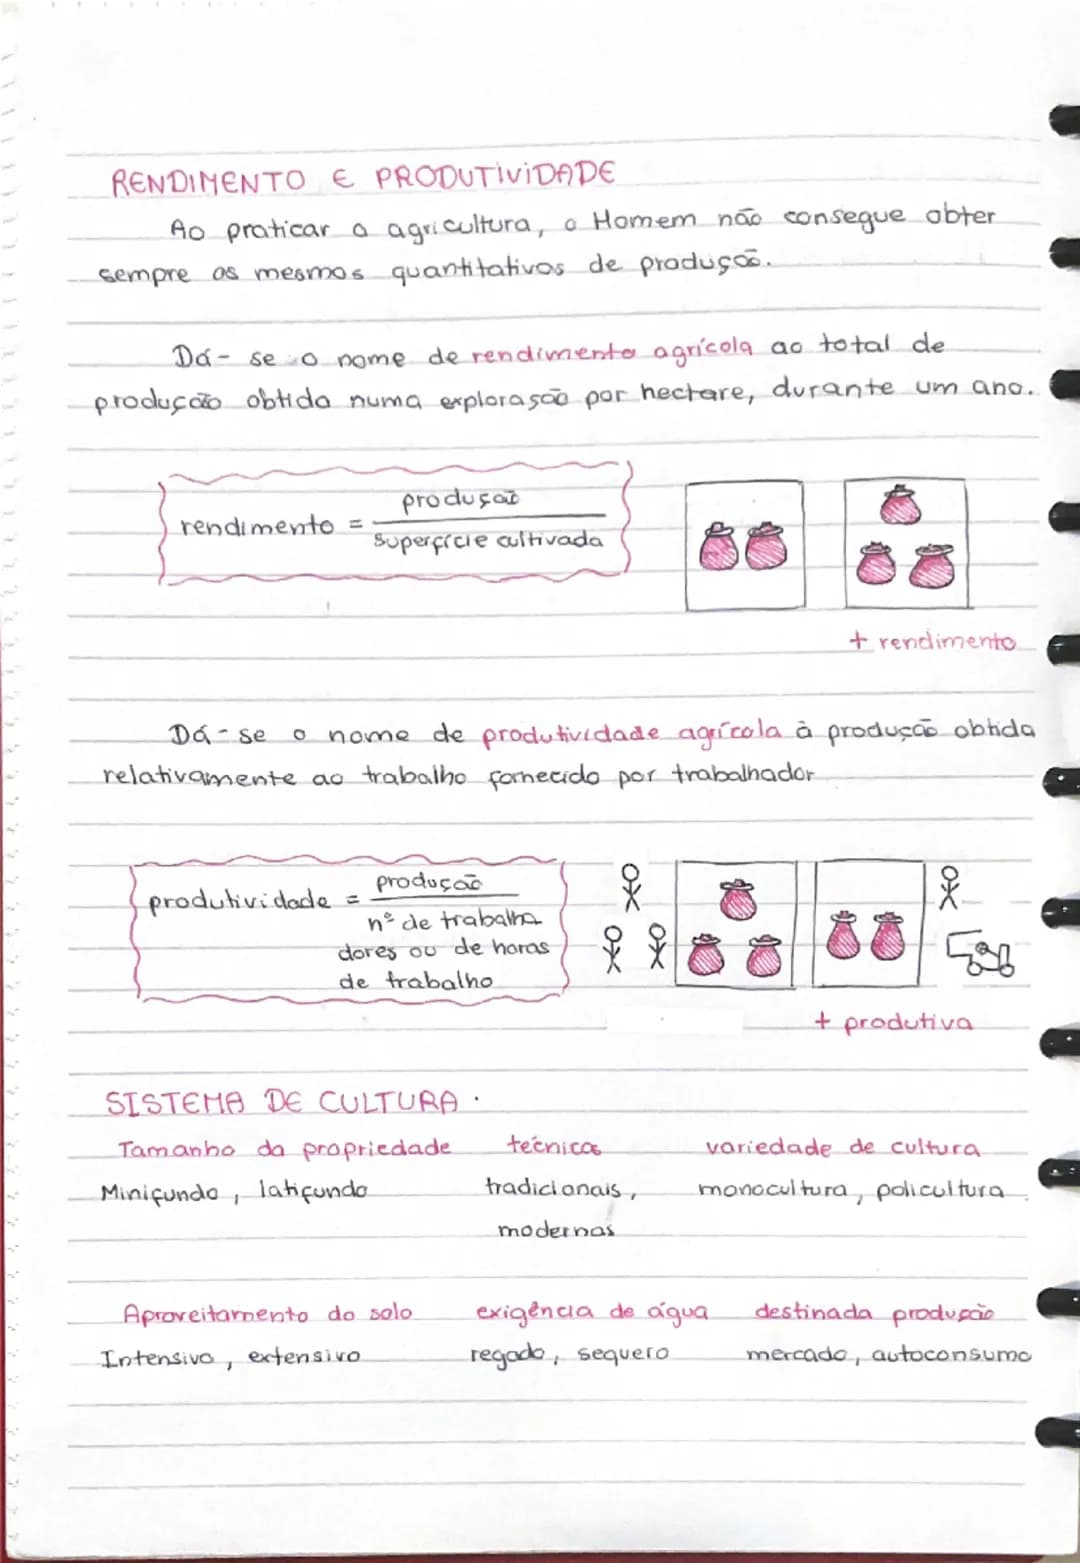 RENDIMENTO E PRODUTIVIDADE
Ao praticar a agricultura, o Homem não consegue obter
sempre os mesmos quantitativos de produção.
Dá-se o nome de rendimento agrícola ao total de
produção obtida numa exploração por hectare, durante um ano.
rendimento = produção
superfície cultivada
+ rendimento
Dá-se o nome de produtividade agrícola à produção obtida
relativamente ao trabalho fornecido por trabalhador
produtividade = produção
nº de trabalha
dores ou de horas
de trabalho
+ produtiva
SISTEMA DE CULTURA .
Tamanho da propriedade técnicas variedade de cultura
Minifundo, latifundo tradicionais, monocultura, policultura.
modernas
Aproveitamento do solo exigência de água destinada produção
Intensivo, extensivo regado, sequero mercado, autoconsumo